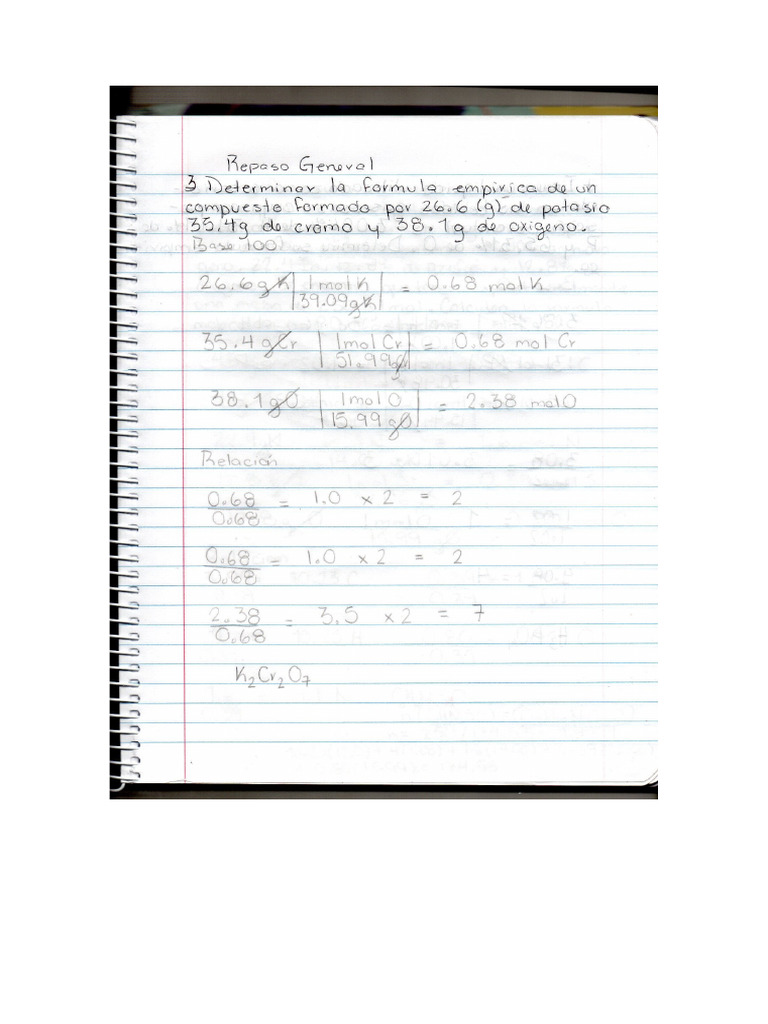 Repaso General
3 Determinar la formula empirica de un
compuesto formado por 26.6 (g) de potasio
35.4g de cromo y 38.1g de oxigeno.
Base 100
26.6 g K | 1 mol K | = 0.68 mol K
39.09 g K
35.4 g Cr | 1 mol Cr | = 0.68 mol Cr
51.99 g
38.1 g O | 1 mol O | = 2.38 mol O
15.99 g O
Relación
0.68 = 1.0 x 2 = 2
0.68
0.68 = 1.0 x 2 = 2
0.68
2.38 = 3.5 x 2 = 7
0.68
K₂Cr₂O₇